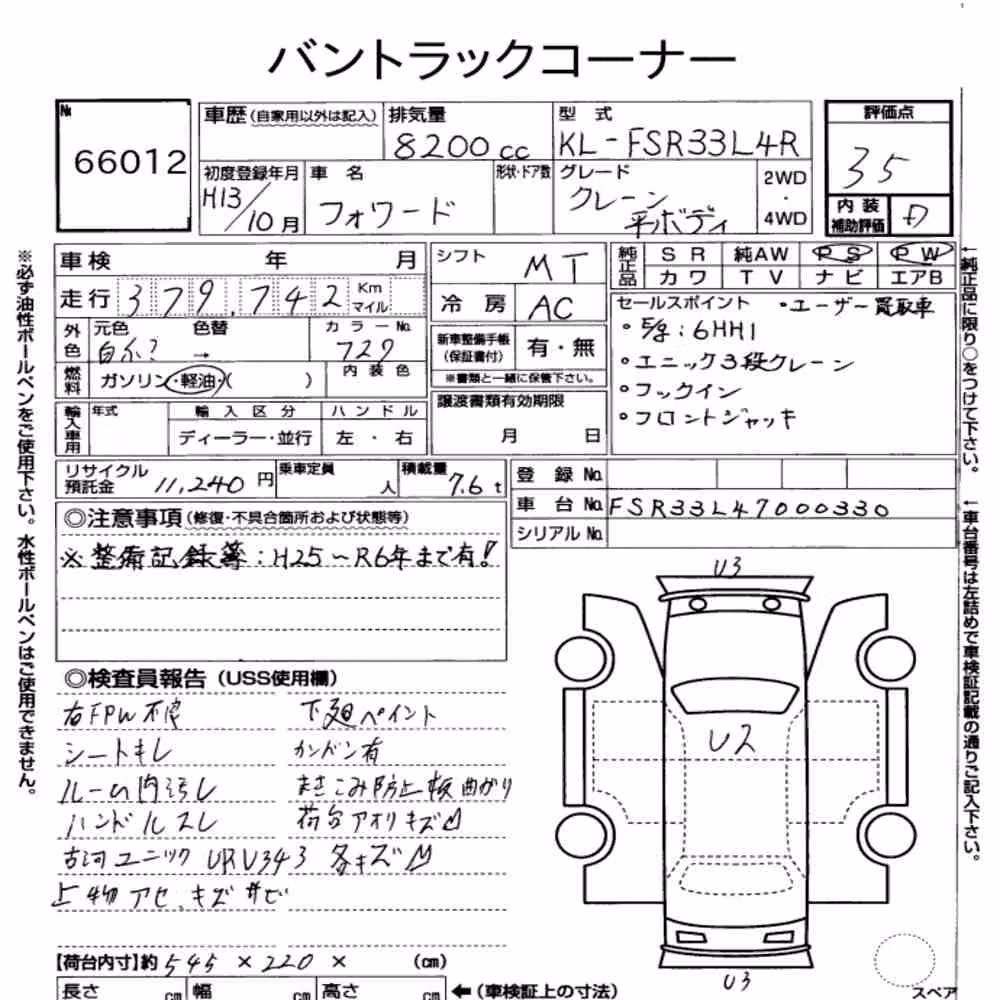 バントラックコーナー
№ 66012
車歴(自家用以外は記入)
排気量 8200cc
型式 KL-FSR33L4R
評価点 35
内装補助評価 D
初度登録年月 H13/10月
車名 フォワード
形状・ドア数
グレード クレーン 平ボディ
2WD・4WD
車検 年 月
走行 379,742 Km マイル
外色 元色 色替 カラーNo.
白 → 729
燃料 ガソリン・軽油・( ) 内装色
輸入車用 年式 輸入区分 ハンドル
ディーラー・並行 左・右
シフト MT
冷房 AC
新車整備手帳(保証書付) 有・無
※書類と一緒に保管下さい。
譲渡書類有効期限
月 日
純正品 SR 純AW PS PW
カワ TV ナビ エアB
セールスポイント ・ユーザー買取車
・E/g:6HH1
・ユニック3段クレーン
・フックイン
・フロントジャッキ
リサイクル預託金 11,240円
乗車定員 人
積載量 7.6t
登録No.
車台No. FSR33L47000330
シリアルNo.
◎注意事項(修復・不具合箇所および状態等)
※整備記録簿:H25〜R6年まで有!
◎検査員報告(USS使用欄)
右FPW不良 下廻ペイント
シートキレ カンバン有
ルーム内汚レ まきこみ防止板曲がり
ハンドルスレ 荷台アオリキズ凹
古河ユニック URV343 各キズ凹
上物アセ、キズサビ
【荷台内寸】約 545 × 220 × (cm)
長さ cm 幅 cm 高さ cm ←(車検証上の寸法)
U3
U2
U3
スペア
※必ず油性ボールペンをご使用下さい。水性ボールペンはご使用できません。
←純正品に限り○をつけて下さい。
←車台番号は左詰めで車検証記載の通りご記入下さい。